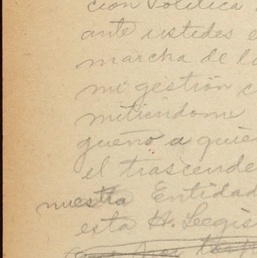 ción Política
ante ustedes e
marcha de la
mi gestión c
mitiéndome
gueño a quie
el trascende
nuestra Entidad
esta H. Legis